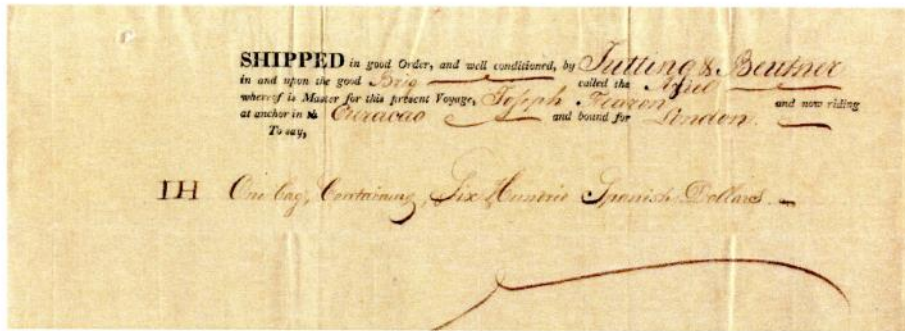 SHIPPED in good Order, and well conditioned, by Jutting & Beutner
in and upon the good Brig called the Ariel
whereof is Master for this present Voyage, Joseph Fearon and now riding
at anchor in Curacao and bound for London.
To say,
IH One bag, Containing, Six Hundred Spanish Dollars